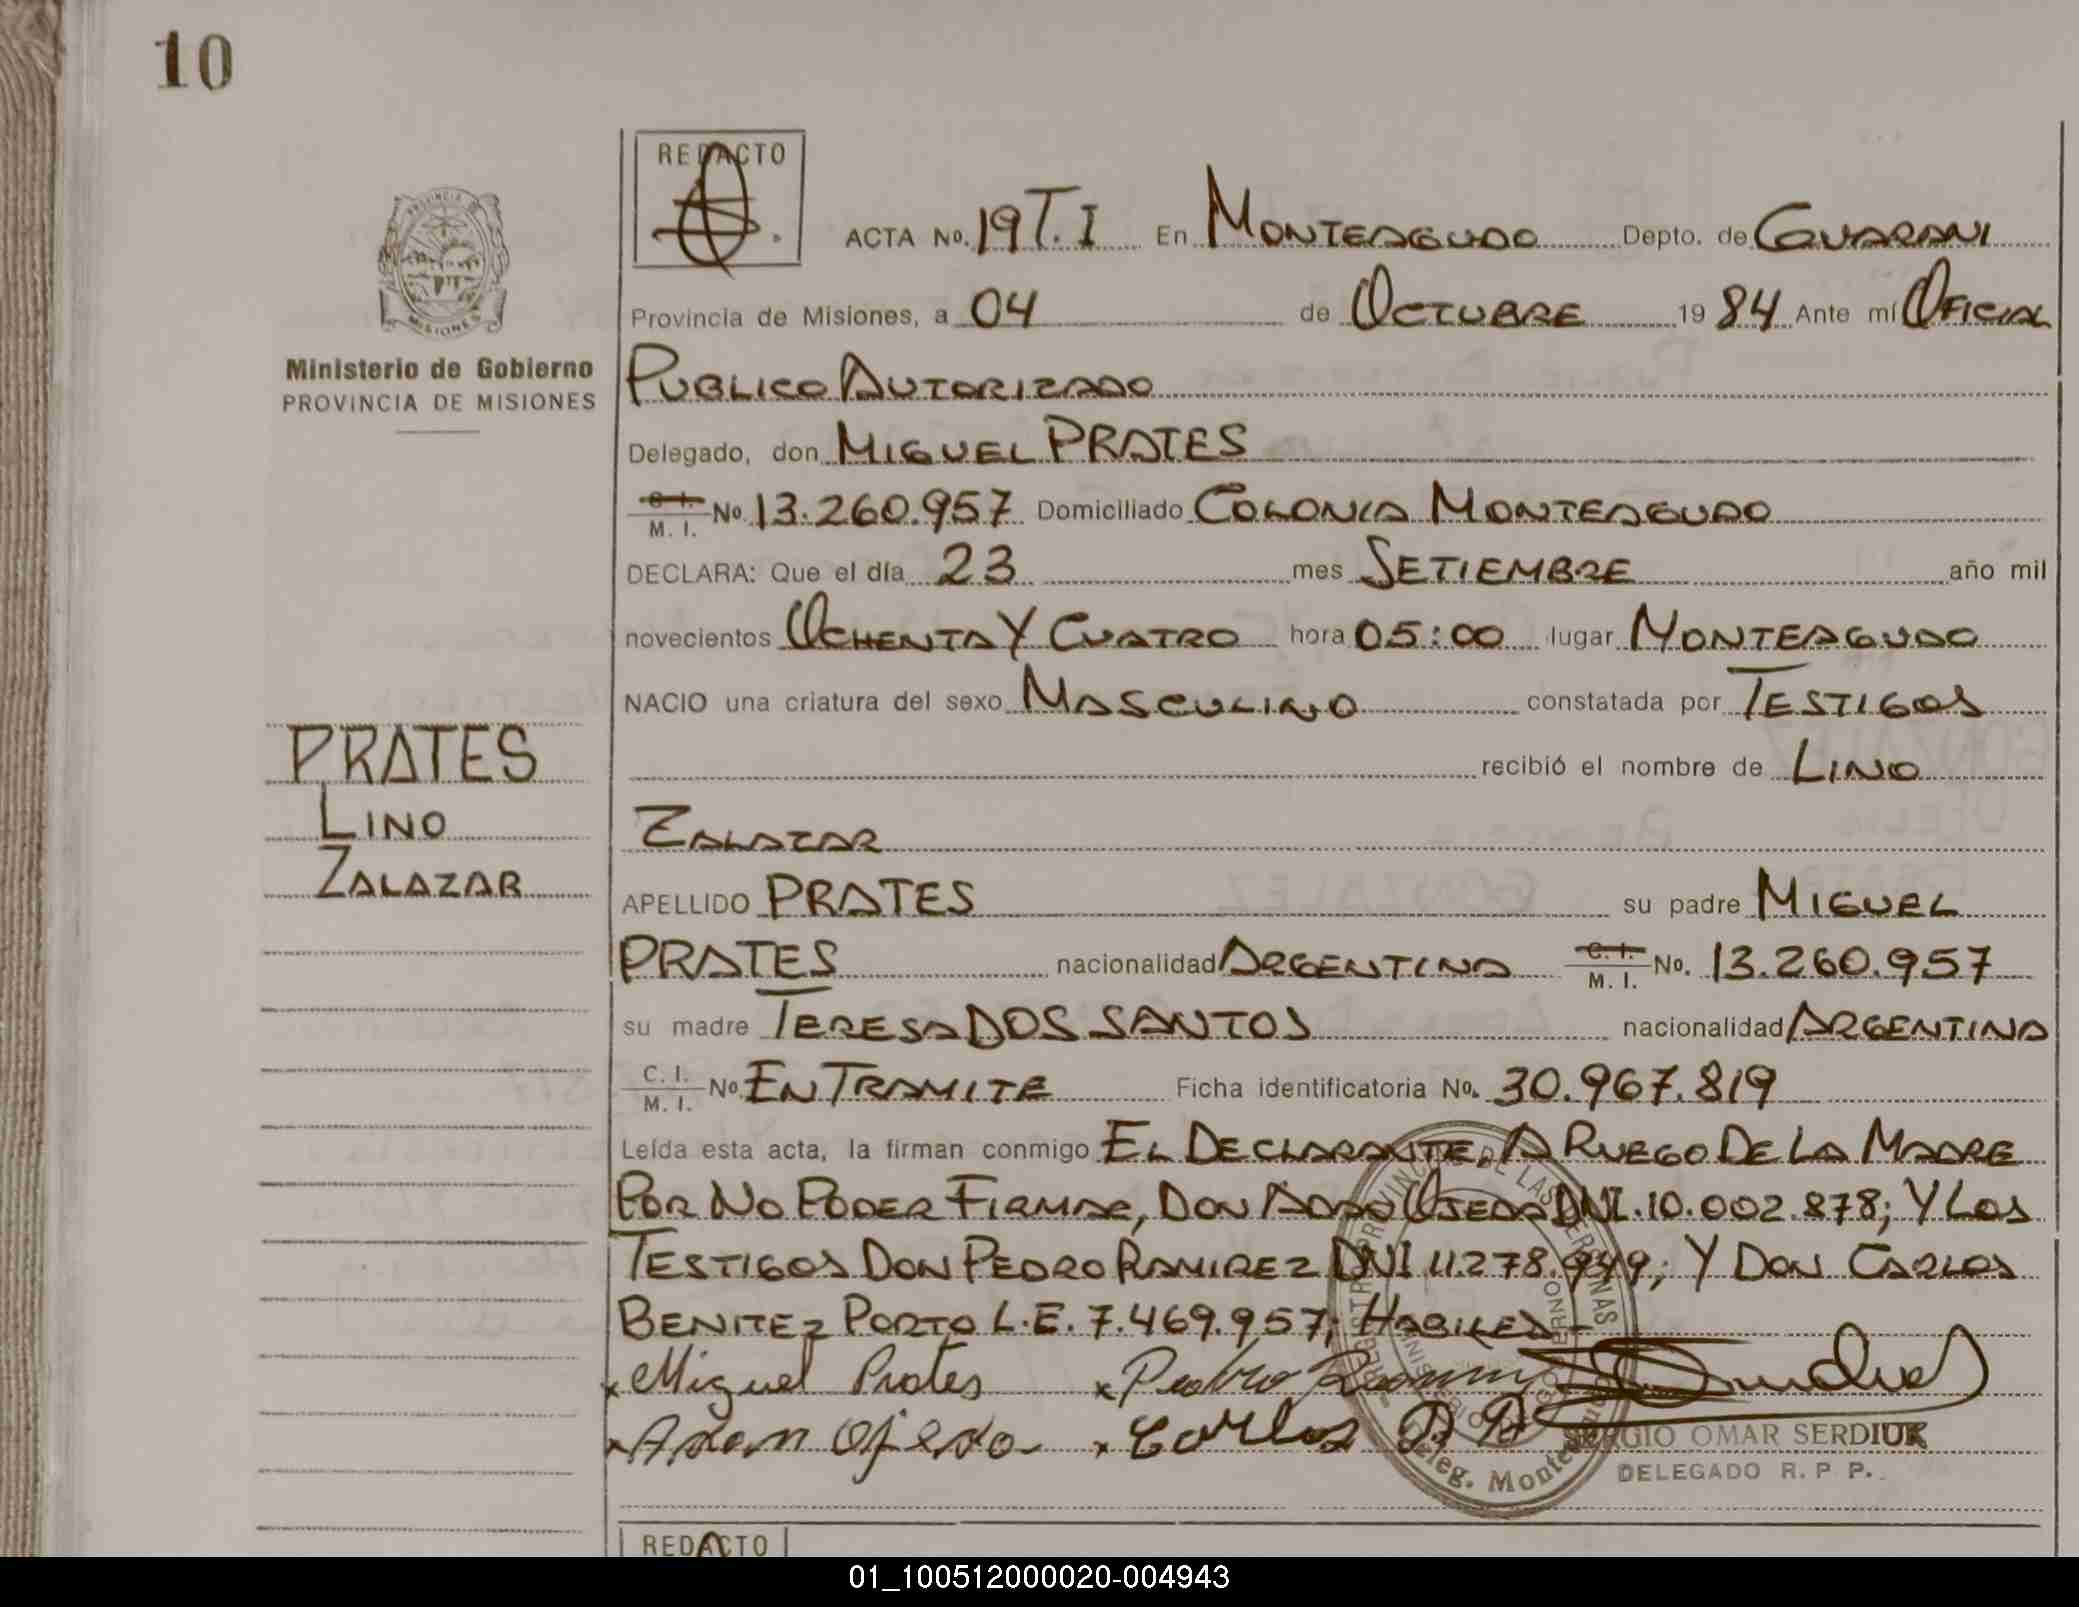 10
REDACTO
ACTA No. 19 T.I En MONTEAGUDO Depto. de GUARANI
Provincia de Misiones, a 04 de OCTUBRE 1984 Ante mí OFICIAL
PUBLICO AUTORIZADO
Delegado, don MIGUEL PRATES
C. I. M. I. No. 13.260.957 Domiciliado COLONIA MONTEAGUDO
DECLARA: Que el día 23 mes SETIEMBRE año mil
novecientos OCHENTA Y CUATRO hora 05:00 lugar MONTEAGUDO
NACIO una criatura del sexo MASCULINO constatada por TESTIGOS
recibió el nombre de LINO
ZALAZAR
APELLIDO PRATES su padre MIGUEL
PRATES nacionalidad ARGENTINA C. I. M. I. No. 13.260.957
su madre TERESA DOS SANTOS nacionalidad ARGENTINA
C. I. M. I. No EN TRAMITE Ficha identificatoria No. 30.967.819
Leída esta acta, la firman conmigo EL DECLARANTE, A RUEGO DE LA MADRE
POR NO PODER FIRMAR, DON ADAN OJEDA DNI. 10.002.878; Y LOS
TESTIGOS DON PEDRO RAMIREZ DNI 11.278.949; Y DON CARLOS
BENITEZ PORTO L.E. 7.469.957; HABILES -
x Miguel Prates x Pedro
x Adan Ojeda x Carlos
SERGIO OMAR SERDIUK
DELEGADO R. P. P.
PROVINCIA DE MISIONES
Ministerio de Gobierno
PROVINCIA DE MISIONES
PRATES
LINO
ZALAZAR
REGISTRO PROVINCIAL DE LAS PERSONAS
Deleg. Monteagudo
REDACTO
01_100512000020-004943